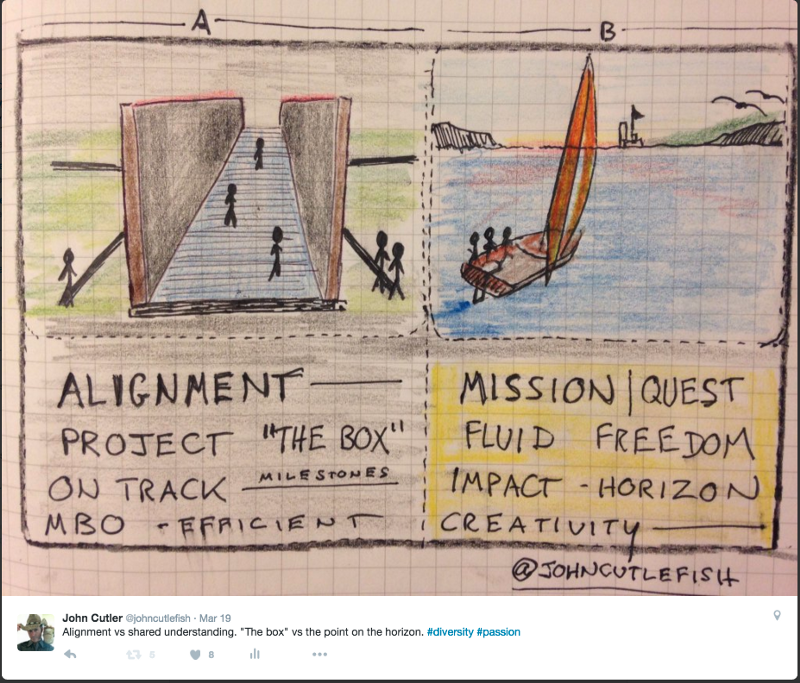 A
B
ALIGNMENT
PROJECT "THE BOX"
ON TRACK MILESTONES
MBO - EFFICIENT
MISSION | QUEST
FLUID FREEDOM
IMPACT - HORIZON
CREATIVITY
@JOHNCUTLEFISH
John Cutler @johncutlefish · Mar 19
Alignment vs shared understanding. "The box" vs the point on the horizon. #diversity #passion
5 8